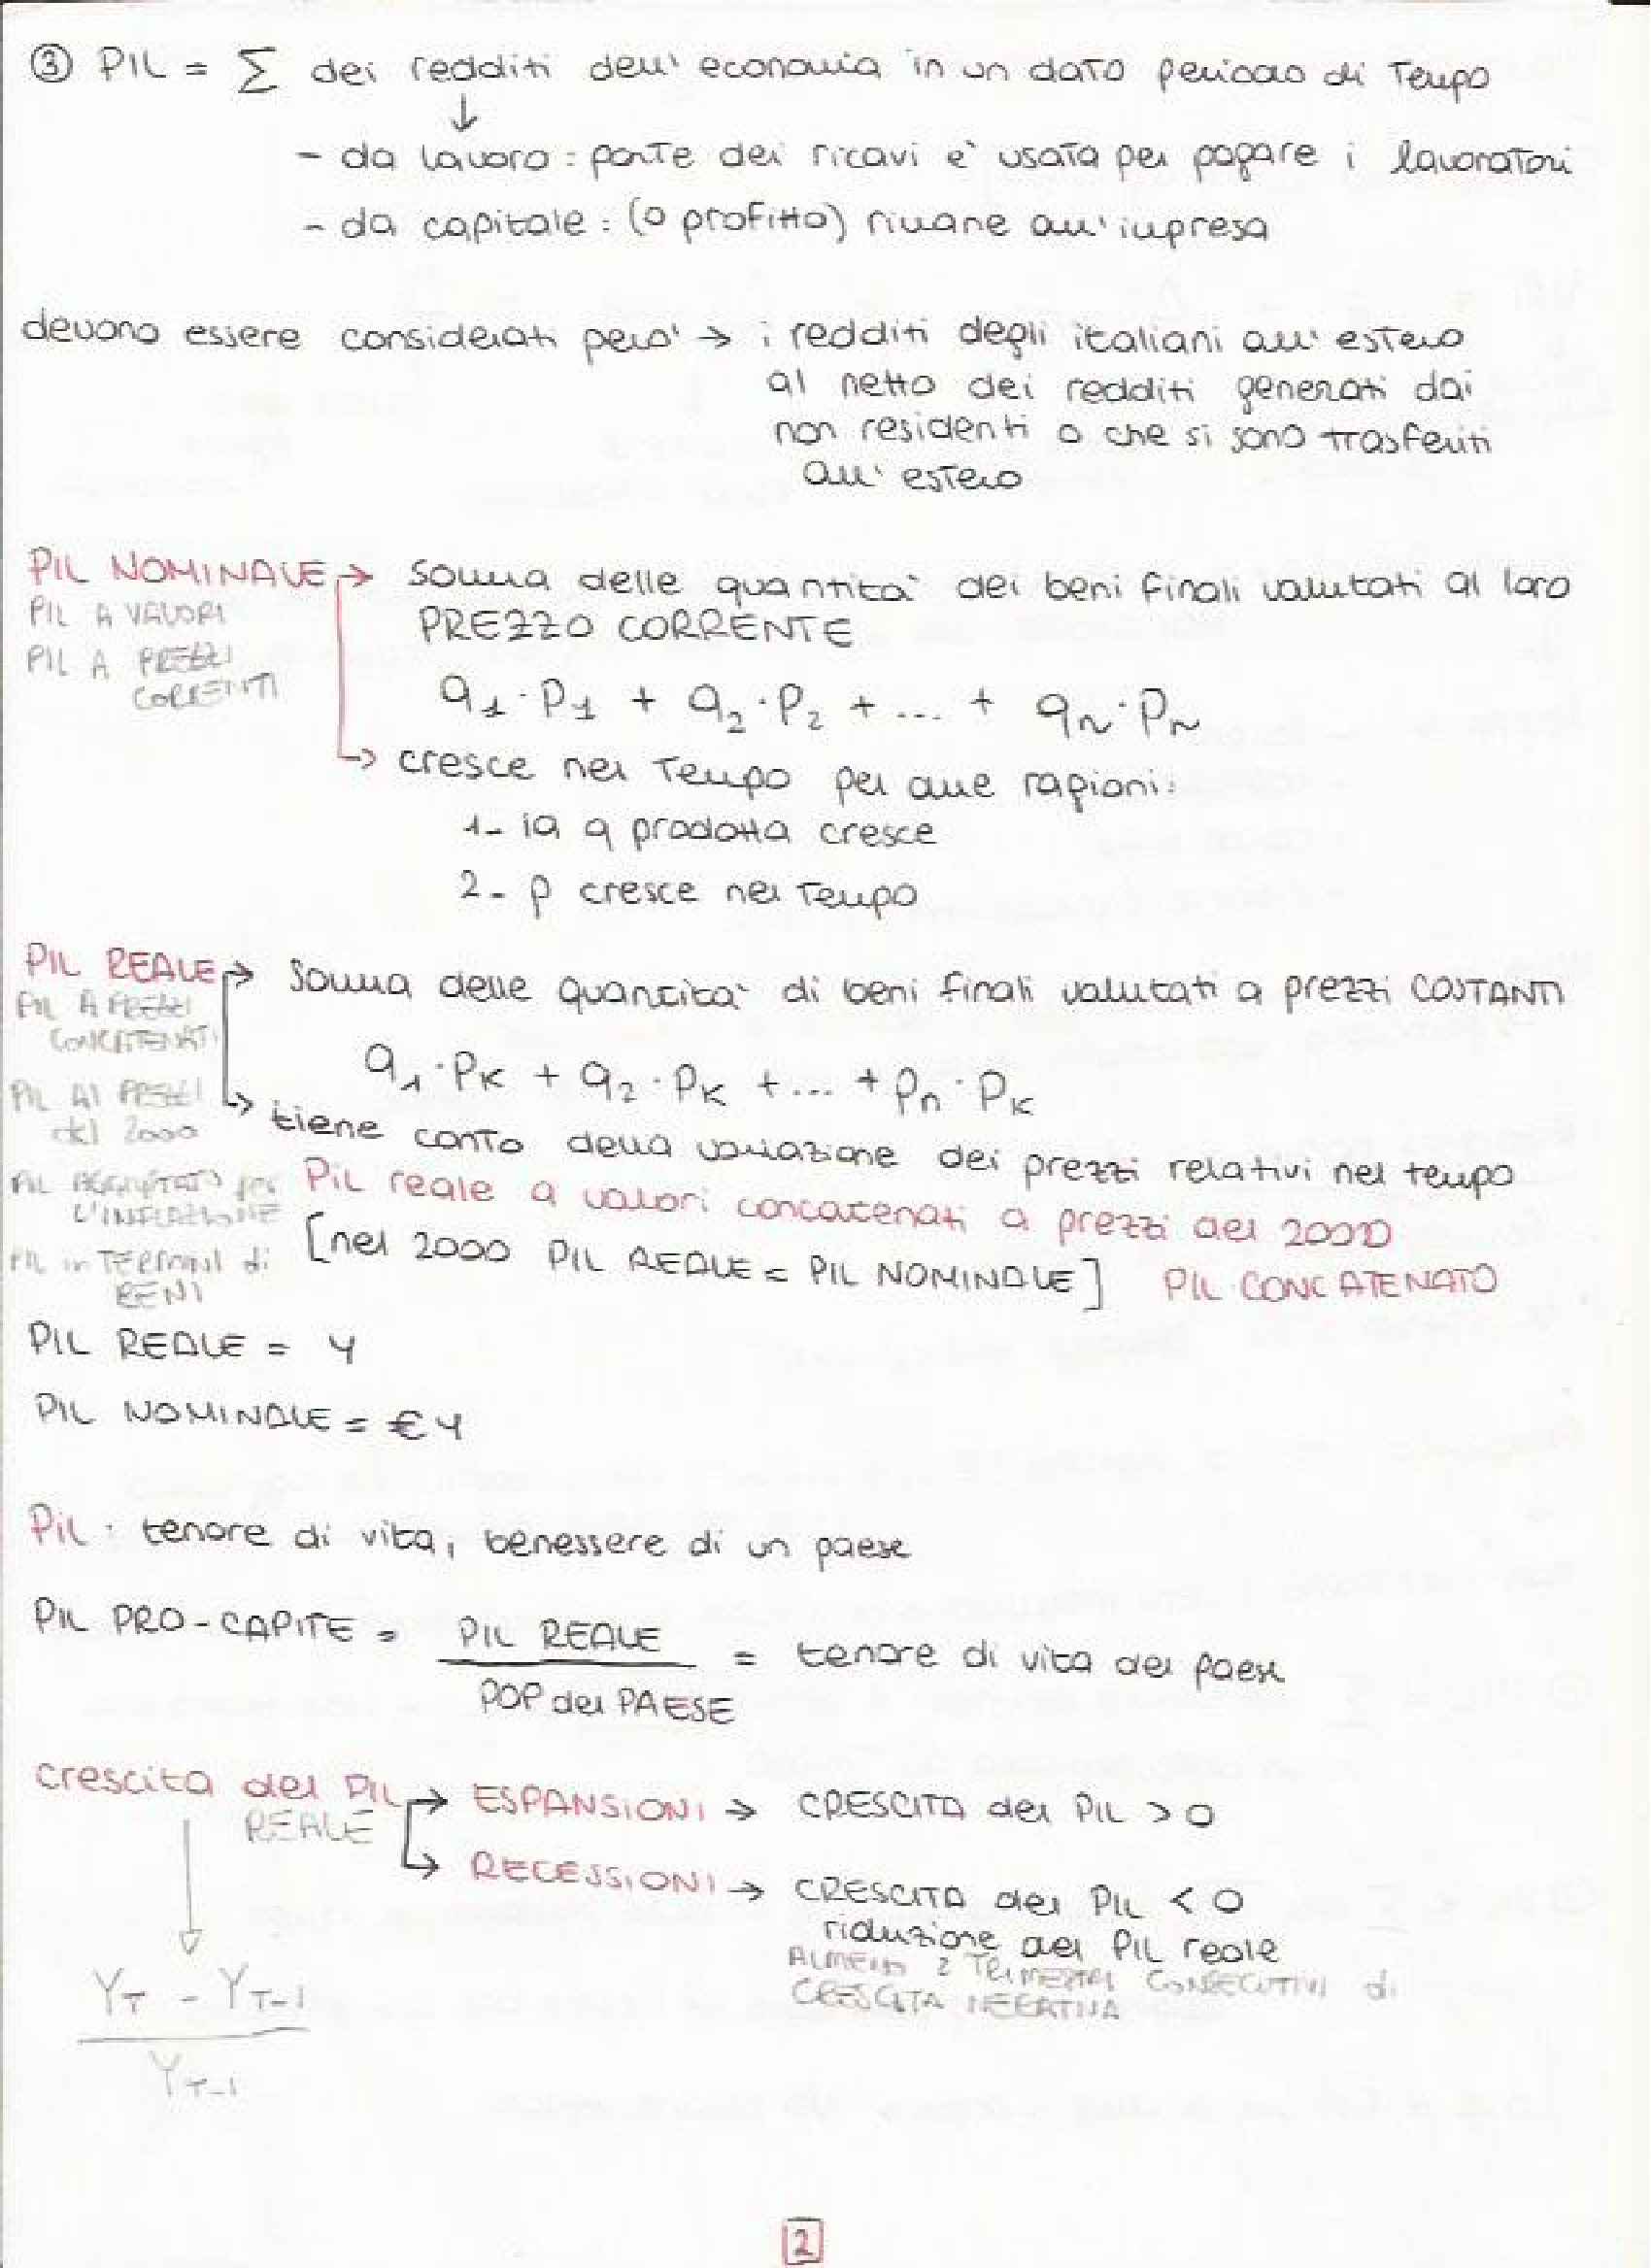 ③ PIL = Σ dei redditi dell' economia in un dato periodo di tempo
↓
- da lavoro : parte dei ricavi e' usata per pagare i lavoratori
- da capitale : (o profitto) rimane all' impresa
devono essere considerati pero' → i redditi degli italiani all' estero
al netto dei redditi generati dai
non residenti o che si sono trasferiti
all' estero
PIL NOMINALE → somma delle quantita' dei beni finali valutati al loro
PIL A VALORI
PREZZO CORRENTE
PIL A PREZZI
CORRENTI
q1 · p1 + q2 · p2 + ... + qn · pn
→ cresce nel tempo per due ragioni:
1- la q prodotta cresce
2- p cresce nel tempo
PIL REALE → Somma delle quantita' di beni finali valutati a prezzi COSTANTI
PIL A PREZZI
CONCATENATI
q1 · pK + q2 · pK + ... + pn · pK
PIL AI PREZZI
del 2000
→ tiene conto della variazione dei prezzi relativi nel tempo
PIL AGGIUSTATO per
L'INFLAZIONE
Pil reale a valori concatenati a prezzi del 2000
[nel 2000 PIL REALE = PIL NOMINALE] PIL CONCATENATO
PIL in TERMINI di
BENI
PIL REALE = Y
PIL NOMINALE = €Y
Pil : tenore di vita, benessere di un paese
PIL PRO-CAPITE = PIL REALE / POP del PAESE = tenore di vita del paese
crescita del PIL → ESPANSIONI → CRESCITA del PIL > 0
REALE
→ RECESSIONI → CRESCITA del PIL < 0
riduzione del PIL reale
ALMENO 2 TRIMESTRI CONSECUTIVI di
CRESCITA NEGATIVA
YT - YT-1
YT-1
2